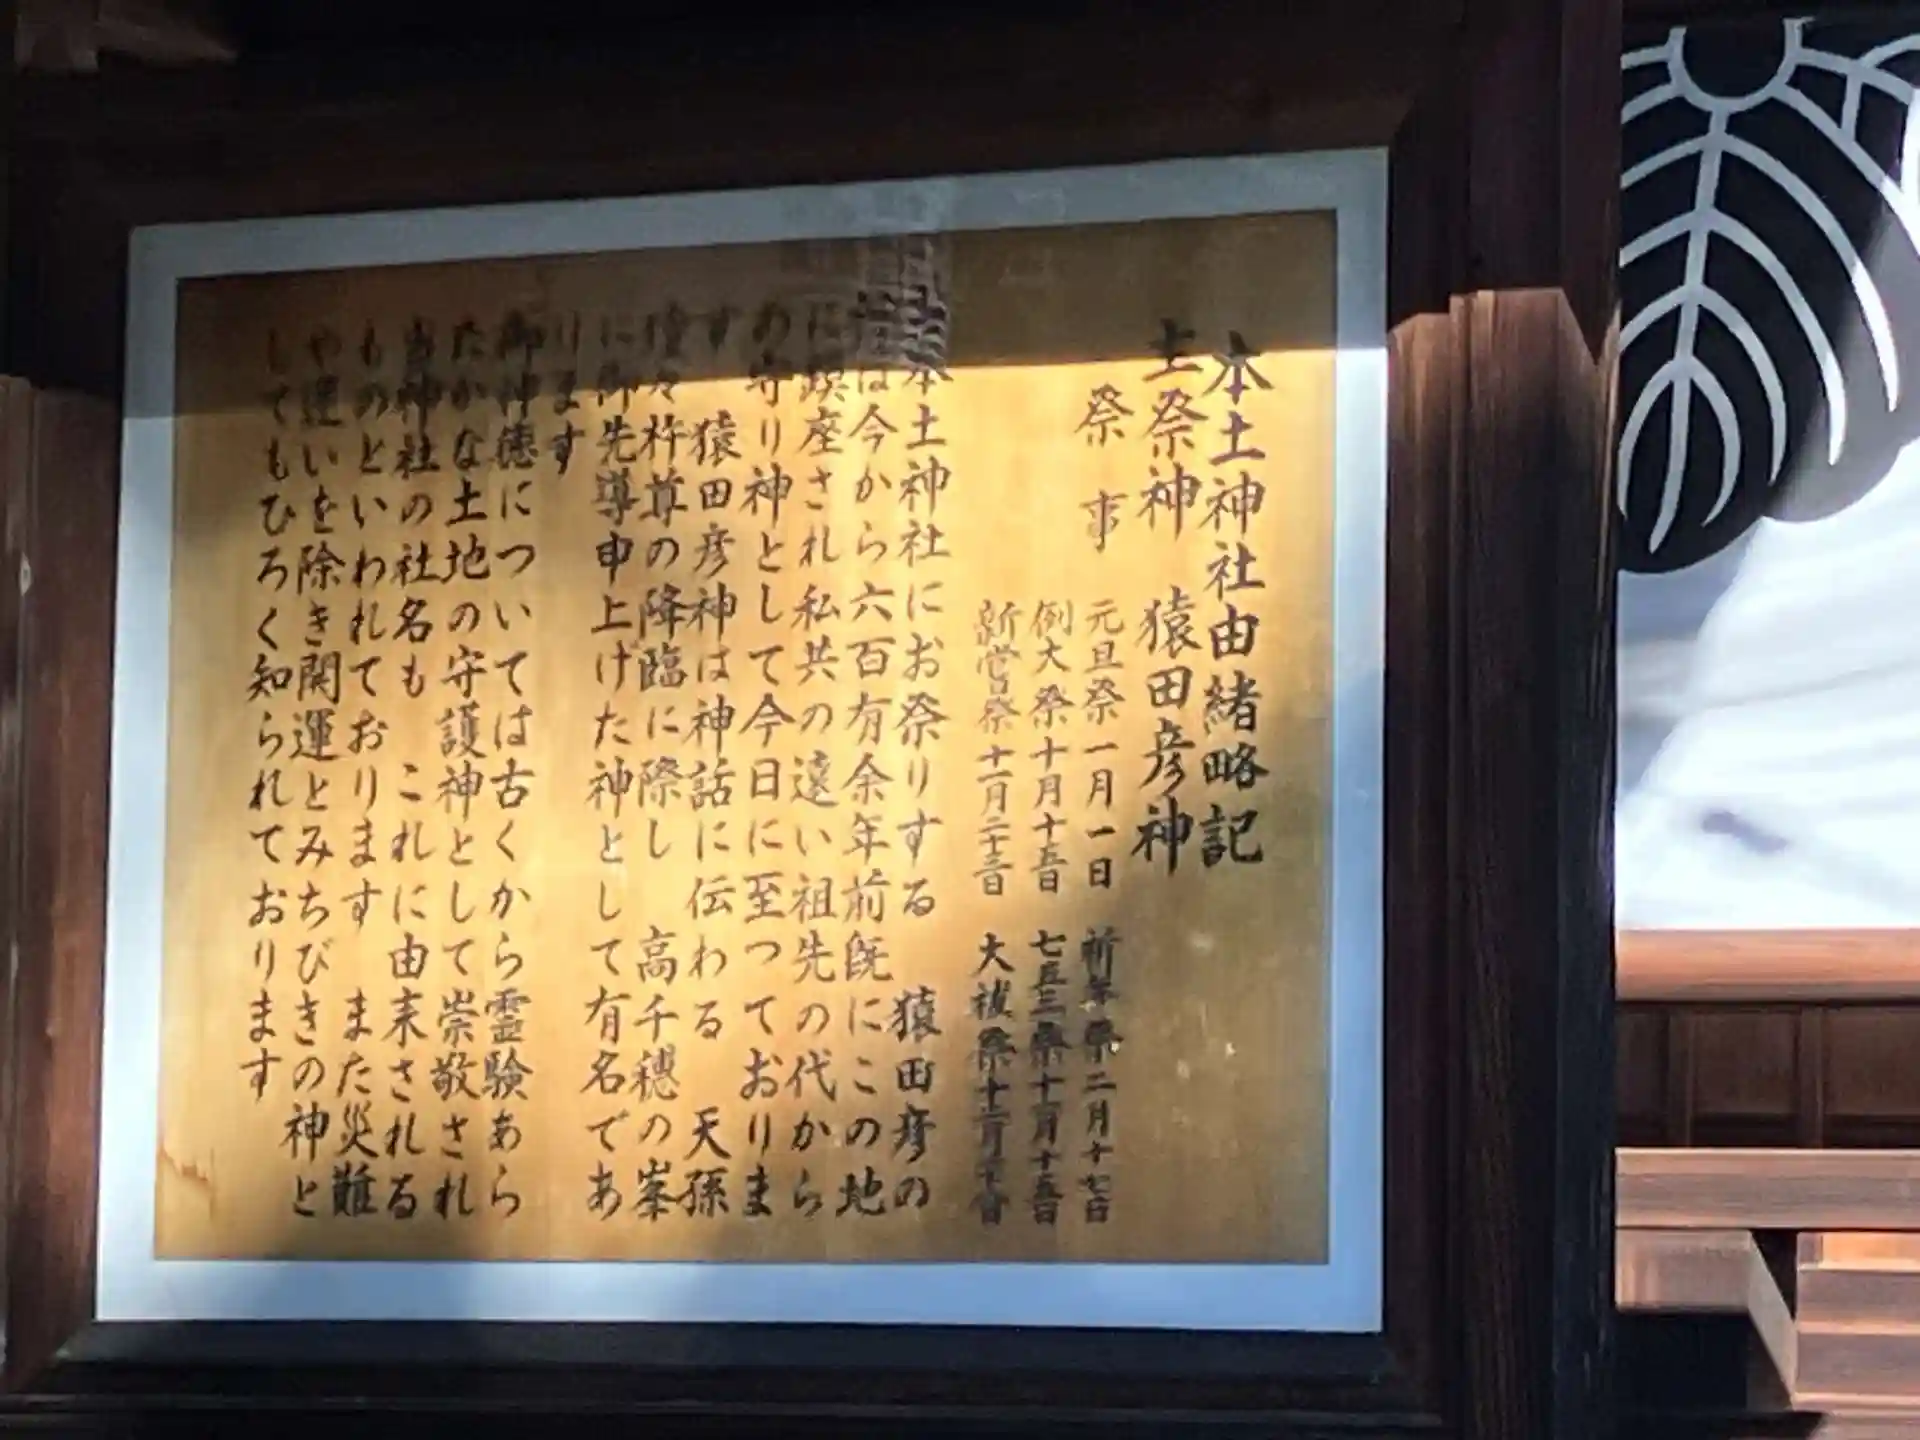 本土神社由緒略記
主祭神 猿田彦神
祭事
元旦祭一月一日 祈年祭二月十七日
例大祭十月十五日 七五三祭十一月十五日
新営祭十一月二十三日 大祓祭十二月
本土神社にお祭りする 猿田彦の
は今から六百有余年前既にこの地
に鎮座され私共の遠い祖先の代から
の守り神として今日に至つておりま
す 猿田彦神は神話に伝わる 天孫
瓊々杵尊の降臨に際し 高千穂の峯
に御先導申上げた神として有名であ
ります
御神徳については古くから霊験あら
たかな土地の守護神として崇敬され
当神社の社名も これに由来される
ものといわれております また災難
や運いを除き開運とみちびきの神と
してもひろく知られております